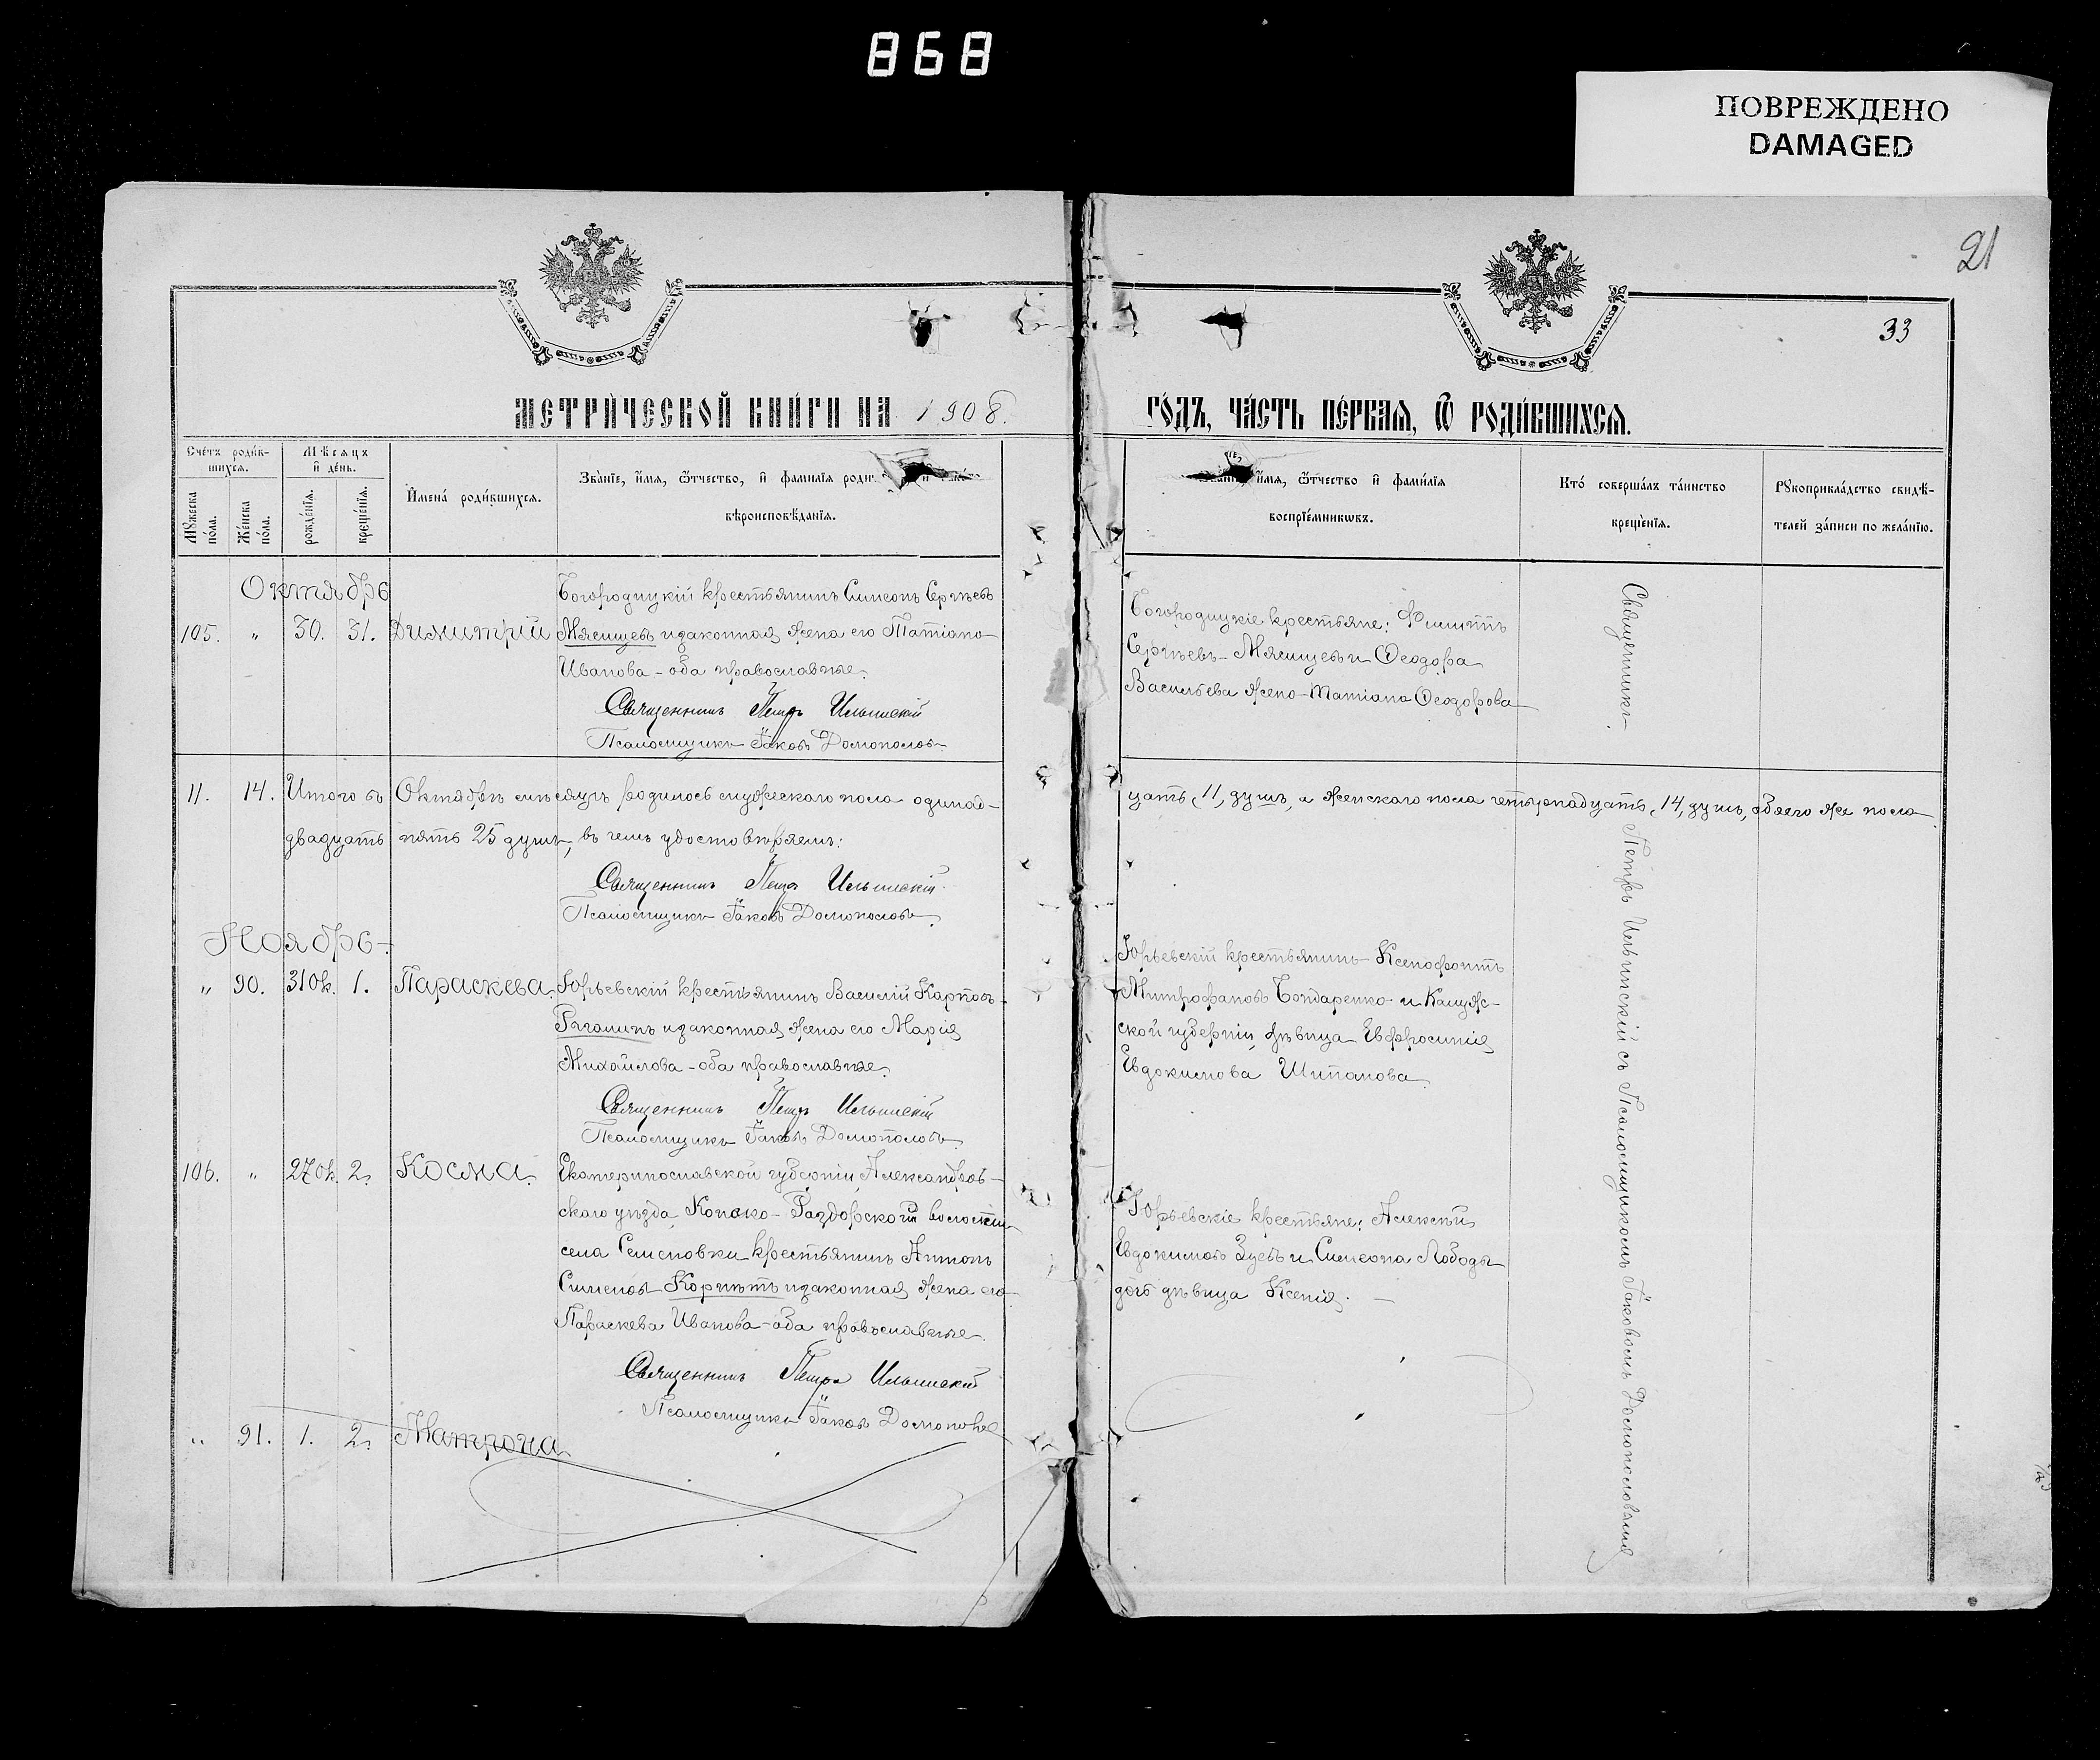 868
ПОВРЕЖДЕНО
DAMAGED
21
33
МЕТРИ́ЧЕСКОЙ КНИ́ГИ НА 1908.
ГО́ДЪ, ЧА́СТЬ ПЕ́РВАЯ, Ѿ РОДИ́ВШИХСЯ.
Сче́тъ роди́в-
шихся.
Мѣсяцъ
и де́нь.
Мꙋжеска
по́ла.
Же́нска
по́ла.
рожде́нїя.
креще́нїя.
Имена́ роди́вшихся.
Зва́нїе, и́мя, ѻ́тчество, и фамилїя роди
вѣроисповѣ́данїя.
и́мя, ѻ́тчество и фами́лїя
воспрїе́мникѡвъ.
Кто́ соверша́лъ та́инство
креще́нїя.
Рꙋкоприкла́дство свидѣ́-
телей за́писи по жела́нїю.
Октябрь
105. " 30. 31. Димитрій
Богородицкій крестьянинъ Симеонъ Сергѣевъ
Мясищевъ и законная жена его Татіана
Иванова - оба православные.
Священникъ Петръ Ильинскій
Псаломщикъ Іаковъ Домополовъ
Богородицкіе крестьяне: Филиппъ
Сергѣевъ Мясищевъ и Ѳеодора
Васильева жена Татіана Ѳеодорова
11. 14. Итого въ Октябрѣ мѣсяцѣ родилось мужескаго пола одинад-
цать, 11, душъ, а женскаго пола четырнадцать, 14, душъ, обоего же пола
двадцать пять 25 душъ, въ чемъ удостовѣряемъ:
Священникъ Петръ Ильинскій
Псаломщикъ Іаковъ Домополовъ
Ноябрь
" 90. 31 Ок. 1. Параскева.
Юрьевскій крестьянинъ Василій Карповъ
и законная жена его Марія
Михайлова - оба православные.
Священникъ Петръ Ильинскій
Псаломщикъ Іаковъ Домополовъ
Юрьевскій крестьянинъ Ксенофонтъ
Митрофановъ Бондаренко и Калуж-
ской губерніи дѣвица Евфросинія
Евдокимова Шипанова
106. " 27 Ок. 2. Косма.
Екатеринославской губерніи, Александров-
скаго уѣзда, Конско-Раздорской волости
села Семеновки крестьянинъ Антонъ
Сименовъ Корнѣтъ и законная жена его
Параскева Иванова - оба православные.
Священникъ Петръ Ильинскій
Псаломщикъ Іаковъ Домополовъ
Юрьевскіе крестьяне: Алексѣй
Евдокимовъ Зуевъ и Симеона Лободы
дочь дѣвица Ксенія.
" 91. 1. 2. Матрона
Священникъ
Петръ Ильинскій съ Псаломщикомъ Іаковомъ Домополовымъ